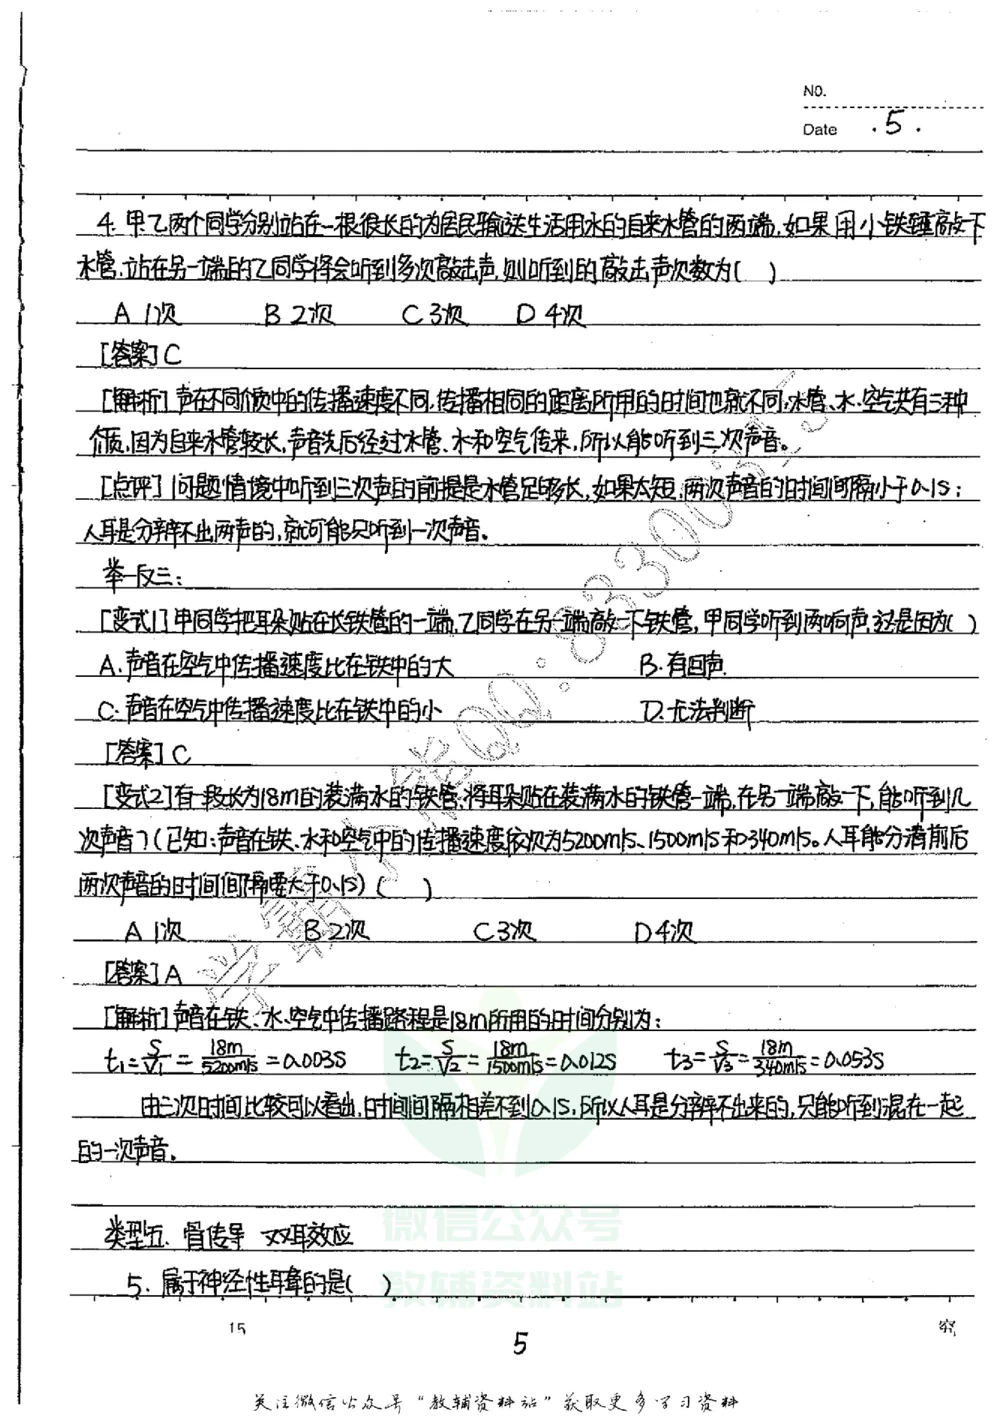 NO.
Date .5.
4. 甲乙两个同学分别站在一根很长的为居民输送生活用水的自来水管的两端,如果用小铁锤敲一下
水管,站在另一端的乙同学将会听到多次敲击声,则听到的敲击声次数为( )
A 1次 B 2次 C 3次 D 4次
[答案] C
[解析] 声在不同介质中的传播速度不同,传播相同的距离所用的时间也就不同,水管、水、空气共有三种
介质,因为自来水管较长,声音先后经过水管、水和空气传来,所以能听到三次声音。
[点评] 问题情境中听到三次声的前提是水管足够长,如果太短,两次声音的时间间隔小于0.1s;
人耳是分辨不出两声的,就可能只听到一次声音。
举一反三:
[变式1] 甲同学把耳朵贴在长铁管的一端,乙同学在另一端敲一下铁管,甲同学听到两响声,这是因为( )
A.声音在空气中传播速度比在铁中的大 B.有回声.
C.声音在空气中传播速度比在铁中的小 D.无法判断
[答案] C
[变式2] 有一段长为18m的装满水的铁管,将耳朵贴在装满水的铁管一端,在另一端敲一下,能听到几
次声音?(已知:声音在铁、水和空气中的传播速度依次为5200m/s、1500m/s和340m/s。人耳能分清前后
两次声音的时间间隔要大于0.1s) ( )
A 1次 B 2次 C 3次 D 4次
[答案] A
[解析] 声音在铁、水、空气中传播路程是18m所用的时间分别为:
t₁=S/V₁=18m/5200m/s=0.003s t₂=S/V₂=18m/1500m/s=0.012s t₃=S/V₃=18m/340m/s=0.053s
由三次时间比较可以看出,时间间隔相差不到0.1s,所以人耳是分辨不出来的,只能听到混在一起
的一次声音。
类型五、骨传导 双耳效应
5.属于神经性耳聋的是( )
微信公众号
教辅资料站
15
5
关注微信公众号“教辅资料站”获取更多学习资料